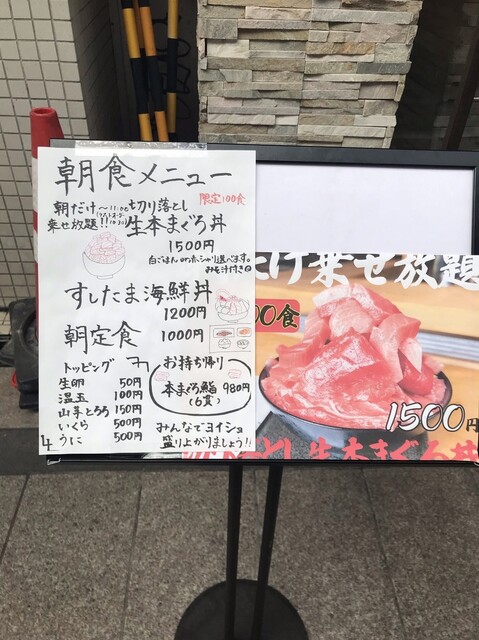 朝食メニュー
朝だけ～11:00
乗せ放題!!
切り落とし
限定100食
生本まぐろ丼
1500円
白ごはん or ホ.シャリ選べます。
みそ汁付き
すしたま海鮮丼
1200円
朝定食 1000円
トッピング
生卵 50円
温玉 100円
山芋とろろ 150円
いくら 500円
うに 500円
お持ち帰り
本まぐろ鮨 980円
(6貫)
みんなでヨイショ
盛り上がりましょう!!
だけ乗せ放題
00食
1500円
とし生本まぐろ丼